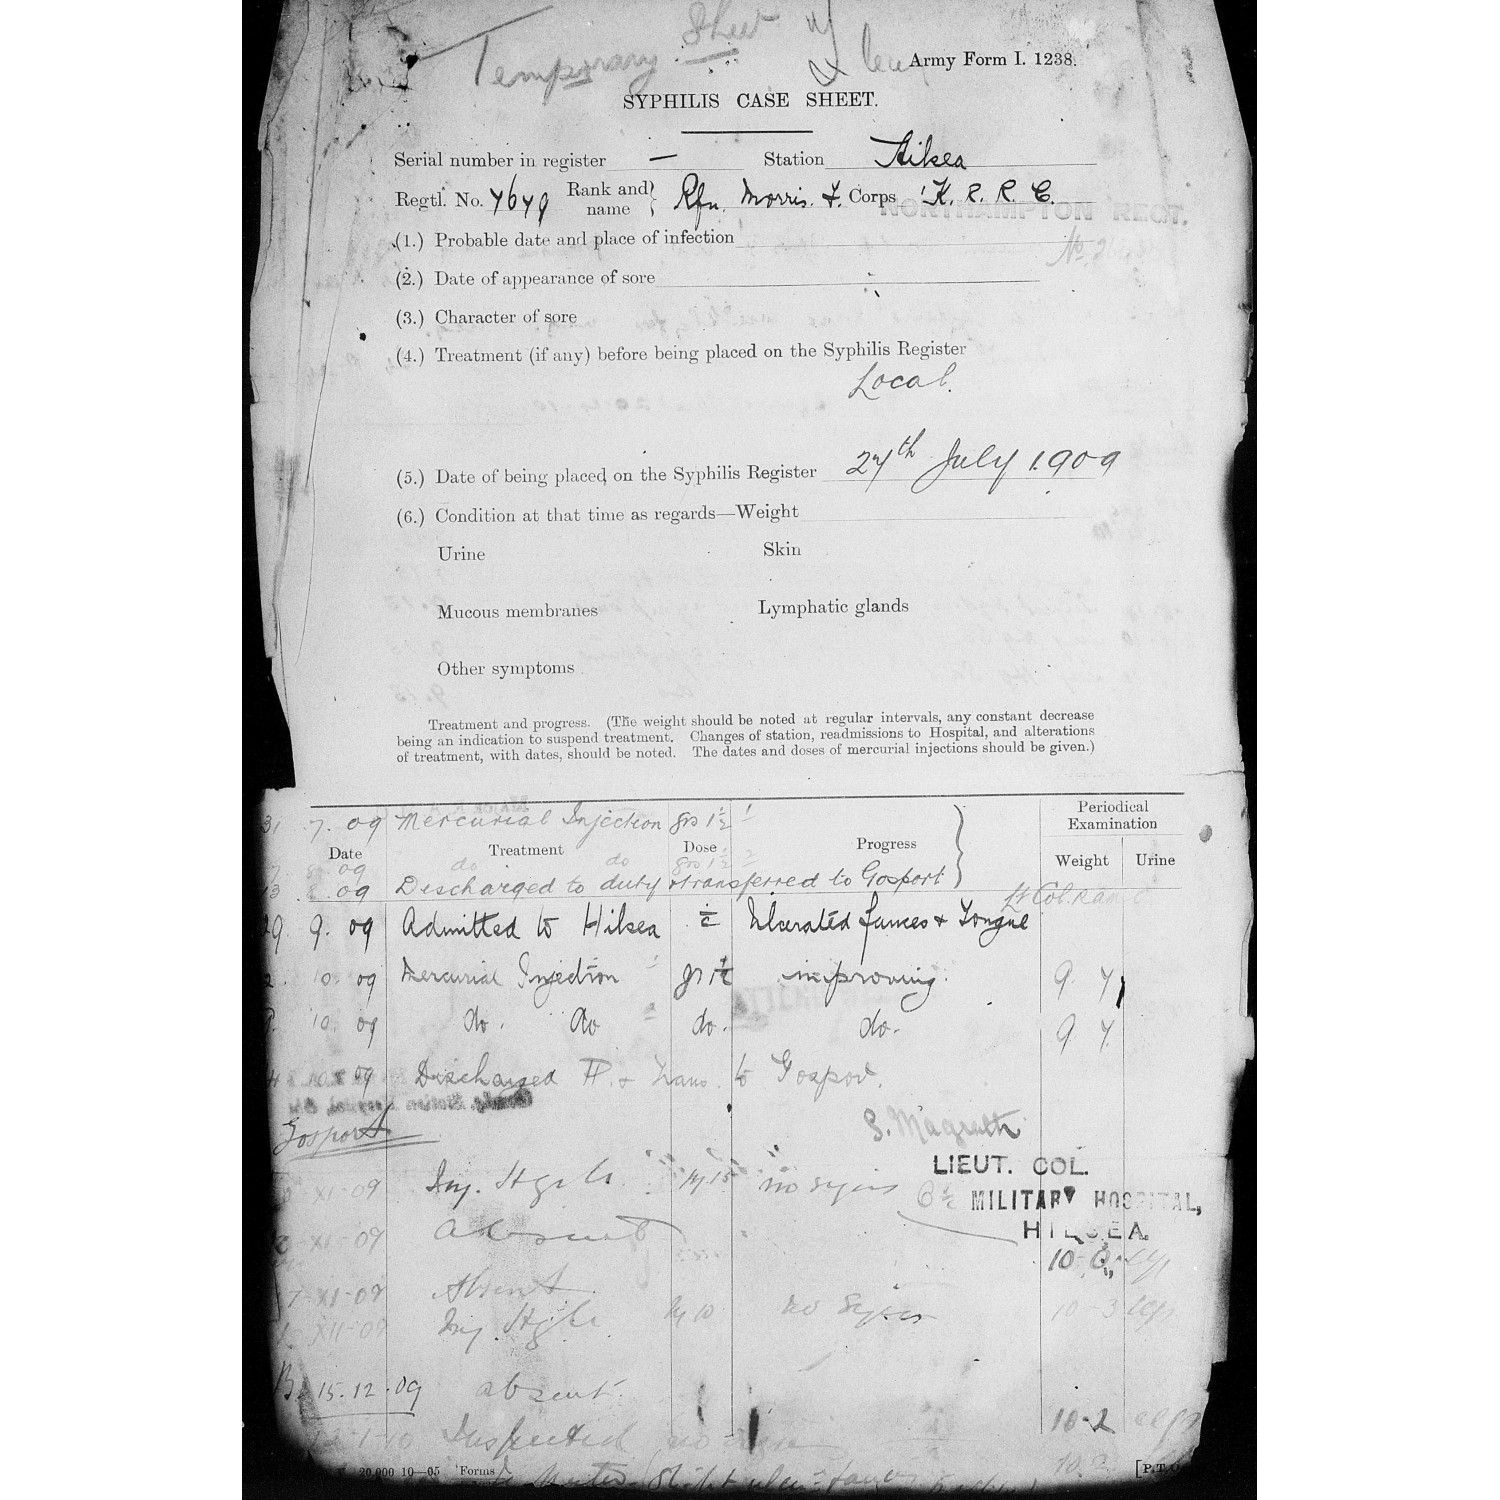 Temporary Sheet
Army Form I. 1238.
SYPHILIS CASE SHEET.
Serial number in register — Station Hilsea
Regtl. No. 7679 Rank and name } Rfn. Morris. F. Corps K. R. R. C.
NORTHAMPTON REGT.
(1.) Probable date and place of infection
(2.) Date of appearance of sore
(3.) Character of sore
(4.) Treatment (if any) before being placed on the Syphilis Register
Local.
(5.) Date of being placed on the Syphilis Register 27th July 1909
(6.) Condition at that time as regards—Weight
Urine Skin
Mucous membranes Lymphatic glands
Other symptoms
Treatment and progress. (The weight should be noted at regular intervals, any constant decrease
being an indication to suspend treatment. Changes of station, readmissions to Hospital, and alterations
of treatment, with dates, should be noted. The dates and doses of mercurial injections should be given.)
31 7. 09 Mercurial Injection grs 1½
Periodical
Examination
Date Treatment Dose Progress Weight Urine
7 8 09 do do grs 1½
13 8 .09 Discharged to duty & transferred to Gosport
Lt Col. RAMC
29. 9. 09 Admitted to Hilsea Ulcerated fauces & Tongue
2. 10. 09 Mercurial Injection gr 1½ improving. 9 7
10. 09 do. do do. do. 9 7.
10 09 Discharged H. & Trans. to Gosport.
Gosport
S. Magrath
LIEUT. COL.
MILITARY HOSPITAL,
HILSEA.
XI-09 Inj. no signs
XI-09 Absent
XI-09 Absent
XII-09 Inj. 10 no signs 10-3
15.12.09 absent.
10-2
Inspected
20,000 10—05 Forms
[P.T.O.